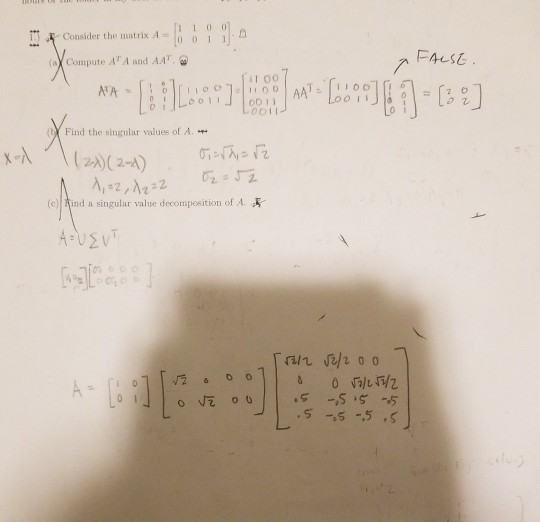 1. Consider the matrix A = [1 1 0 0; 0 0 1 1].
FALSE.
(a) Compute AᵀA and AAᵀ.
AᵀA = [1 0; 1 0; 0 1; 0 1] [1 1 0 0; 0 0 1 1] = [1 1 0 0; 1 1 0 0; 0 0 1 1; 0 0 1 1] AAᵀ = [1 1 0 0; 0 0 1 1] [1 0; 1 0; 0 1; 0 1] = [2 0; 0 2]
(b) Find the singular values of A.
X=λ (2-λ)(2-λ) σ₁=√λ₁=√2
λ₁=2, λ₂=2 σ₂=√2
(c) Find a singular value decomposition of A.
A=UΣVᵀ
A = [1 0; 0 1] [√2 0 0 0; 0 √2 0 0] [√2/2 √2/2 0 0; 0 0 √2/2 √2/2; .5 -.5 .5 -.5; .5 -.5 -.5 .5]